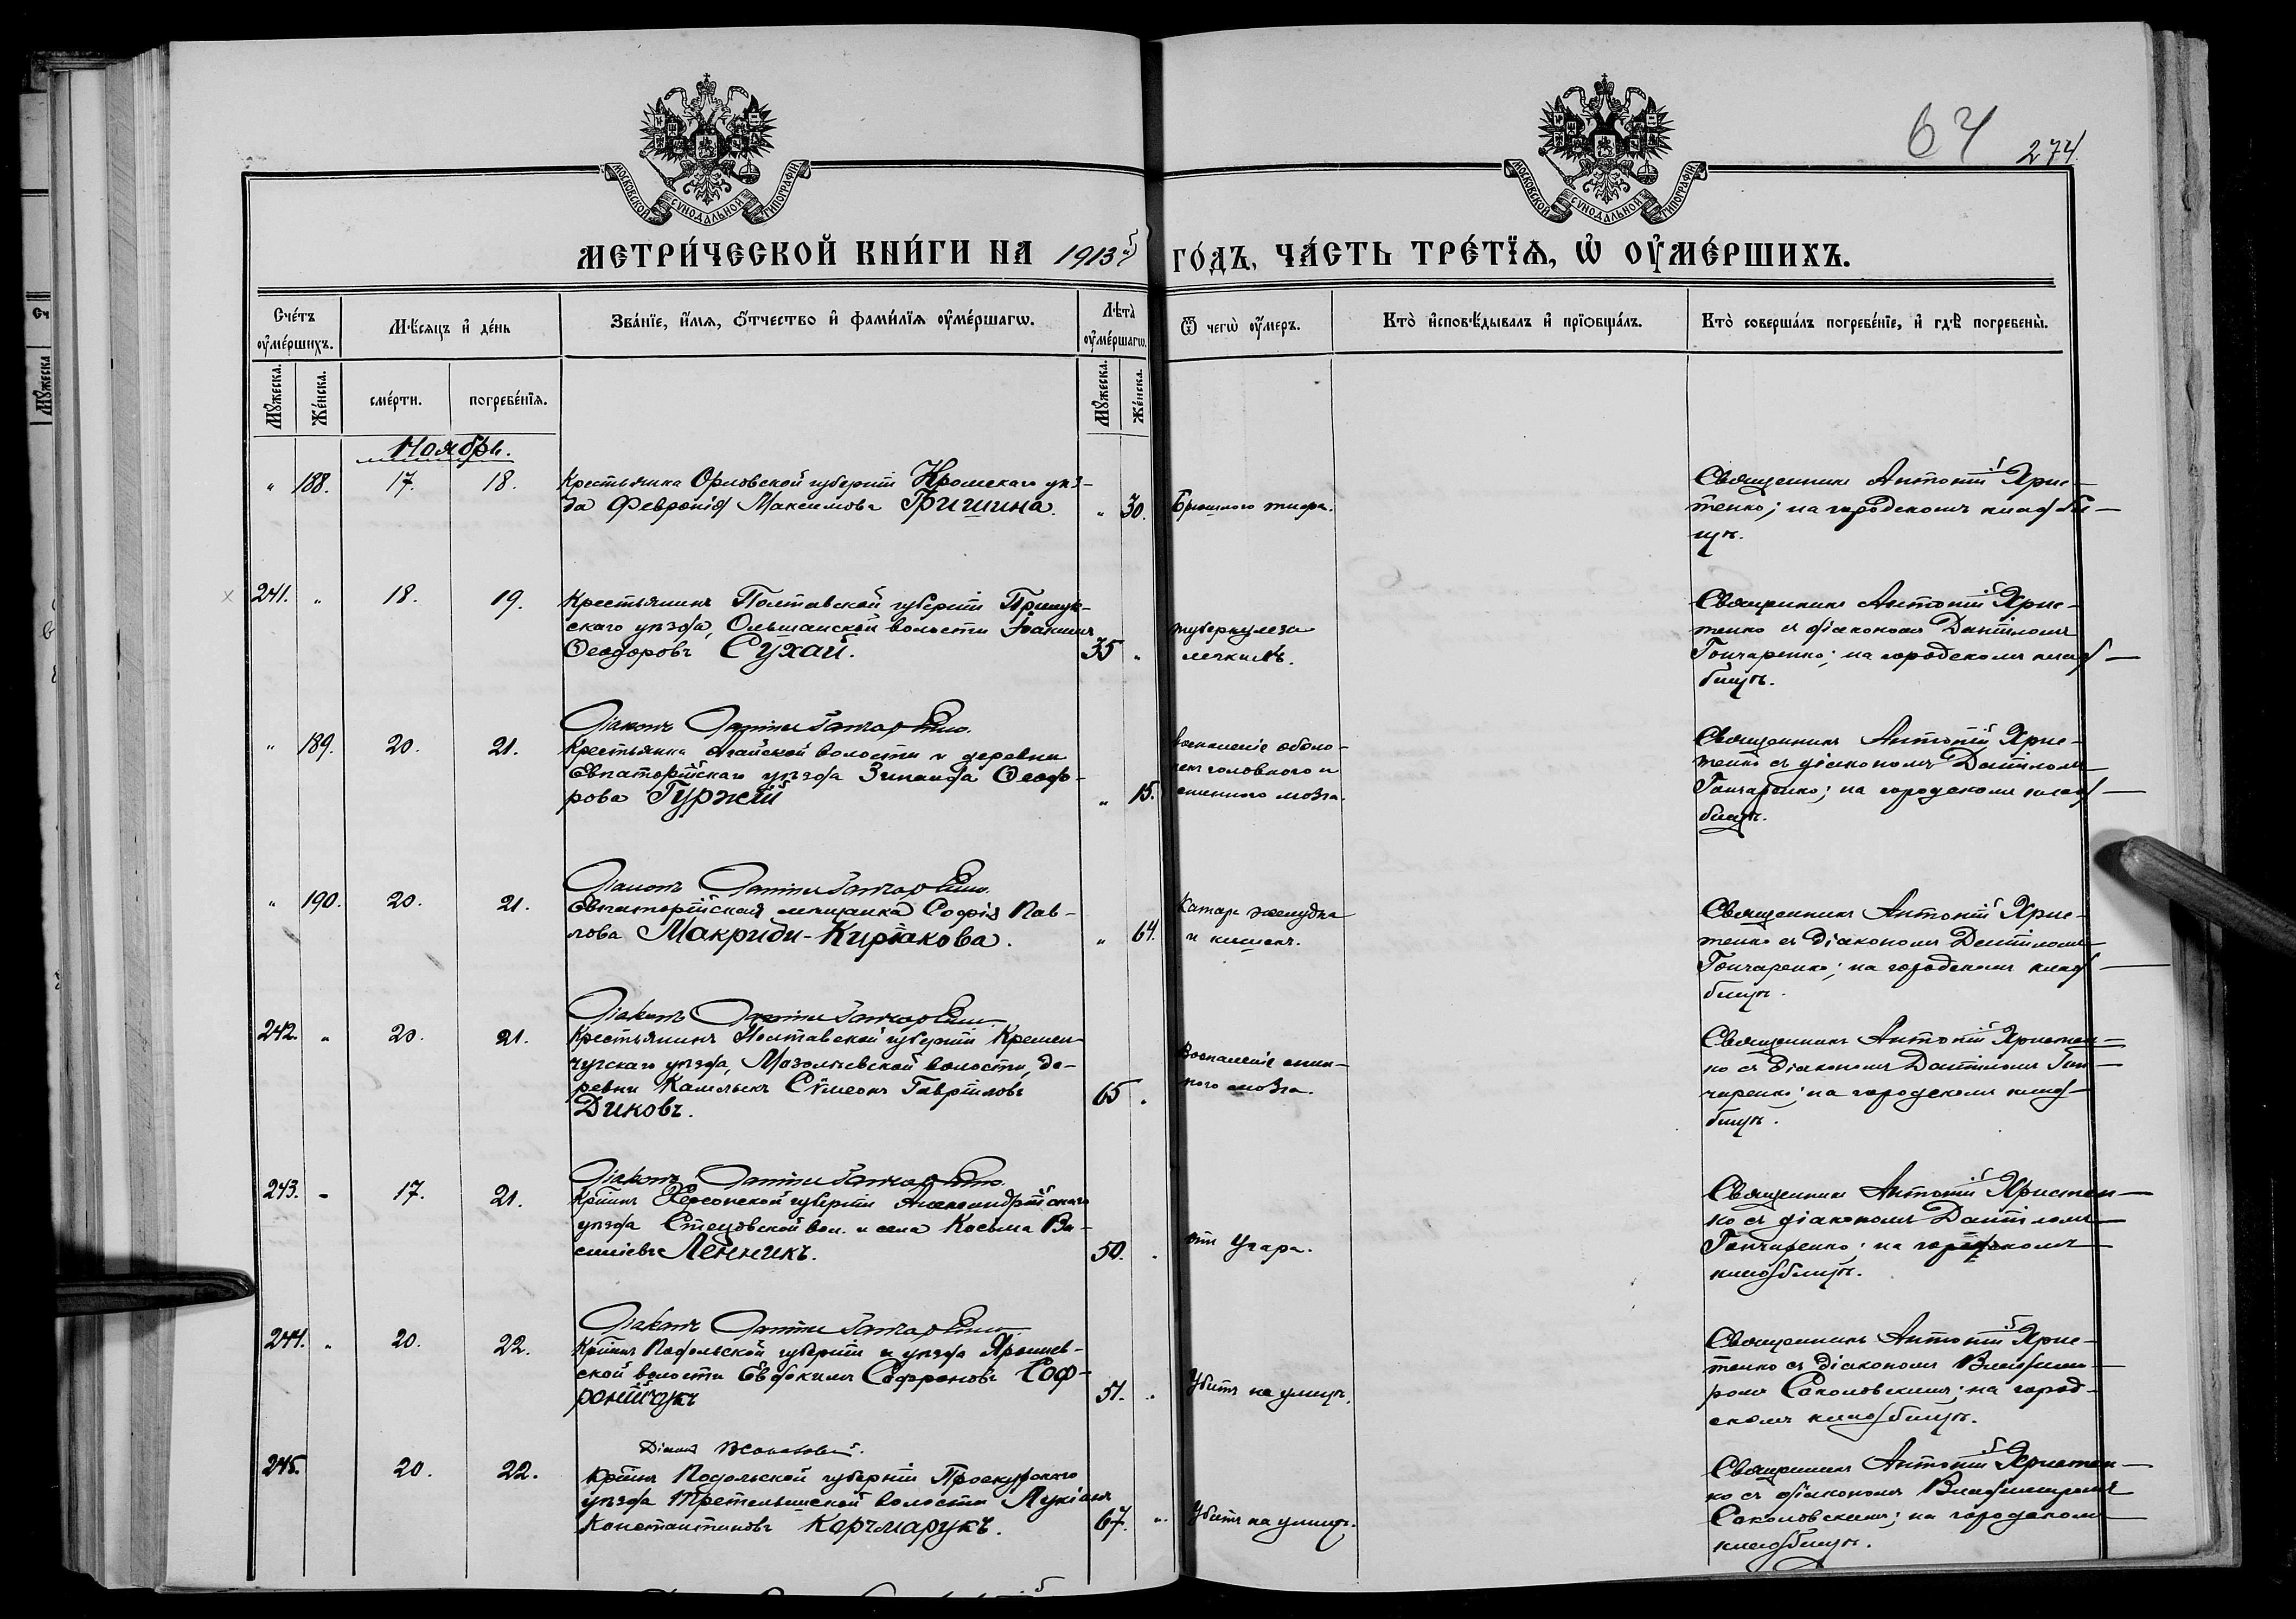 64
274.
МОСКОВСКОЙ СѴНОДАЛЬНОЙ ТИПОГРАФІИ
МОСКОВСКОЙ СѴНОДАЛЬНОЙ ТИПОГРАФІИ
МЕТРИ́ЧЕСКОЙ КНИ́ГИ НА 1913й ГО́ДЪ, ЧА́СТЬ ТРЕ́ТІѦ, Ѡ҆ ОУ҆МЕ́РШИХЪ.
Сче́тъ оу҆ме́ршихъ.
Мѣ́сяцъ и҆ де́нь
Зва́нїе, и҆́мѧ, ѻ҆́тчество и҆ фами́лїѧ оу҆ме́ршагѡ.
Лѣ́та оу҆ме́ршагѡ.
Ѿ чегѡ̀ оу҆́меръ.
Кто̀ и҆сповѣ́дывалъ и҆ прїѻбща́лъ.
Кто̀ соверша́лъ погребе́нїе, и҆ гдѣ̀ погребены̀.
Мꙋ́жеска.
Же́нска.
сме́рти.
погребе́нїѧ.
Мꙋ́жеска.
Же́нска.
Ноябрь.
" 188. 17. 18.
Крестьянка Орловской губерніи Кромскаго уѣз-
да Февронія Максимова Гришина. " 30.
Брюшного тифа.
Священникъ Антоній Хрис-
тенко; на городскомъ кладби-
щѣ.
241. " 18. 19.
Крестьянинъ Полтавской губерніи Прилук-
скаго уѣзда, Ольшанской волости Іоакимъ
Ѳеодоровъ Сухай. 35 "
туберкулеза
легкихъ.
Священникъ Антоній Хрис-
тенко съ діакономъ Даніиломъ
Гончаренко; на городскомъ клад-
бищѣ.
Діаконъ Даніилъ Гончаренко.
" 189. 20. 21.
Крестьянка Агайской волости и деревни
Евпаторійскаго уѣзда Зинаида Ѳеодо-
рова Гуржій " 15.
воспаленіе оболо-
чекъ головного и
спинного мозга.
Священникъ Антоній Хрис-
тенко съ діакономъ Даніиломъ
Гончаренко; на городскомъ клад-
бищѣ.
Діаконъ Даніилъ Гончаренко.
" 190. 20. 21.
Евпаторійская мѣщанка Софія Пав-
лова Макриди-Киріакова. " 64.
Катаръ желудка
и кишекъ.
Священникъ Антоній Хрис-
тенко съ діакономъ Даніиломъ
Гончаренко; на городскомъ клад-
бищѣ.
Діаконъ Даніилъ Гончаренко.
242. " 20. 21.
Крестьянинъ Полтавской губерніи Кремен-
чугскаго уѣзда, Мозолѣевской волости, де-
ревни Сѵмеонъ Гавріиловъ
Диковъ. 65 "
Воспаленіе спин-
ного мозга.
Священникъ Антоній Христен-
ко съ діакономъ Даніиломъ Гон-
чаренко; на городскомъ клад-
бищѣ.
Діаконъ Даніилъ Гончаренко.
243. " 17. 21.
Кр̃нинъ Херсонской губерніи Александрійскаго
уѣзда Стецовской вол. и села Косьма Ва-
силіевъ Ленникъ. 50. "
отъ Угара.
Священникъ Антоній Христен-
ко съ діакономъ Даніиломъ
Гончаренко; на городскомъ
кладбищѣ.
Діаконъ Даніилъ Гончаренко.
244. " 20. 22.
Кр̃нинъ Подольской губерніи и уѣзда
ской волости Евдокимъ Софроновъ Соф-
ронійчукъ 51. "
Убитъ на улицѣ.
Священникъ Антоній Хрис-
тенко съ діакономъ Владими-
ромъ Соколовскимъ; на город-
скомъ кладбищѣ.
Діаконъ
245. 20. 22.
Кр̃нинъ Подольской губерніи Проскуровскаго
уѣзда Третельницкой волости Лукіанъ
Константиновъ Корчмарукъ. 67. "
Убитъ на улицѣ.
Священникъ Антоній Христен-
ко съ діакономъ Владимиромъ
Соколовскимъ; на городскомъ
кладбищѣ.